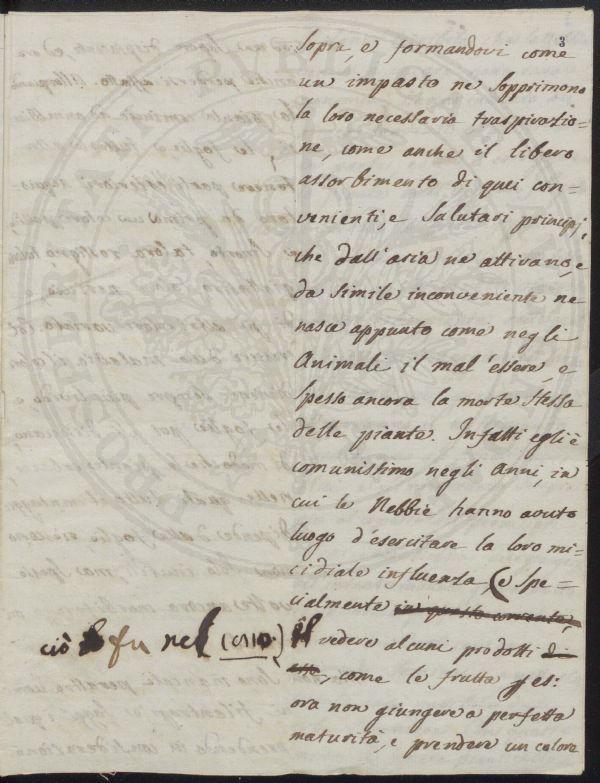 3
sopra, e formandovi come
un impasto ne sopprimono
la loro necessaria traspirazio=
ne, come anche il libero
assorbimento di quei con=
venienti, e salutari principj,
che dall'aria ne attivano, e
da simile inconveniente ne
nasce appunto come negli
Animali il mal'essere, e
spesso ancora la morte stessa
delle piante. Infatti egli è
comunissimo negli Anni, in
cui le Nebbie hanno avuto
luogo d'esercitare la loro mi=
cidiale influenza, (e spe=
cialmente in questo corrente,
ciò fu nel
vedere alcuni prodotti di
esso, come le frutta p es:
ora non giungere a perfetta
maturità, e prendere un colore